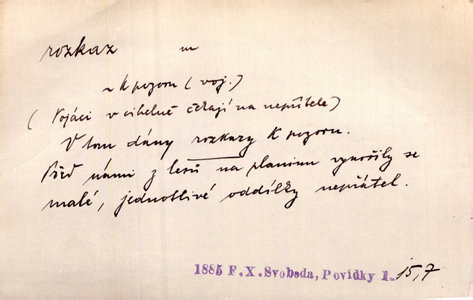 rozkaz m
~ k pozoru (voj.)
(Vojáci v cihelně čekají na nepřítele)
V tom dány rozkazy k pozoru.
Před námi z lesů na planinu vyrojily se
malé, jednotlivé oddílky nepřátel.
1885 F. X. Svoboda, Povídky 1. 15,7